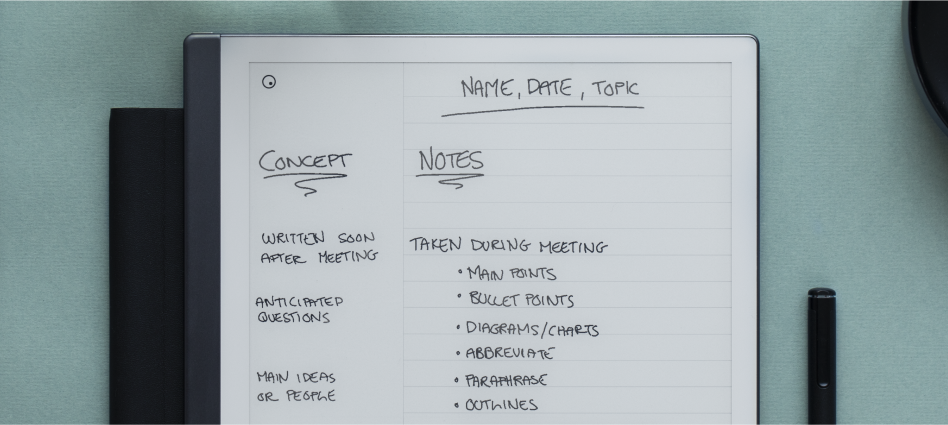 NAME, DATE, TOPIC
CONCEPT
WRITTEN SOON
AFTER MEETING
ANTICIPATED
QUESTIONS
MAIN IDEAS
OR PEOPLE
NOTES
TAKEN DURING MEETING
• MAIN POINTS
• BULLET POINTS
• DIAGRAMS/CHARTS
• ABBREVIATE
• PARAPHRASE
• OUTLINES